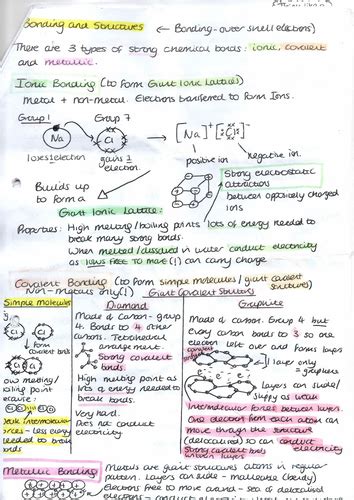 Bonding and Structures ← Bonding - outer shell electrons)
There are 3 types of strong chemical bonds: ionic, covalent
and metallic.
Ionic Bonding (to form Giant Ionic Lattices)
metal + non-metal. Electrons transferred to form Ions.
Group 1
Group 7
Na
Cl
→ [Na]+ [Cl]-
loses 1 electron
gains 1
electron.
positive ion
negative ion.
Builds up
to form a
Strong electrostatic
attractions
between oppositely charged
ions
Giant Ionic Lattice:
Properties: High melting/boiling points lots of energy needed to
break many strong bonds.
When melted/dissolved in water conduct electricity
as IONS FREE TO MOVE (!) can carry charge.
Covalent Bonding (to form simple molecules/giant covalent
structures)
Non-metals only (!)
Giant Covalent Structures
Simple Molecules
Cl Cl
form
covalent
bonds
Low melting/
boiling point
because:
weak intermolecular
forces - less energy
needed to break
bonds
Diamond
Made of Carbon - group
4. Bonds to 4 other
carbons. Tetrahedral
arrangement.
Strong covalent
bonds.
High melting point as
lots of energy needed to
break bonds.
Very hard.
Does not conduct
electricity.
Graphite
Made of carbon. Group 4 but
every carbon bonds to 3 so one
electron left over and forms layers
1 layer only
= graphene
Layers can slide/
slippy as weak
intermolecular forces between layers.
One electron from each atom can
move through the structure
(delocalised) so can conduct
electricity
Strong covalent bonds
within layers
Metallic Bonding
Metals are giant structures atoms in regular
pattern. Layers can slide - malleable (bendy)
electrons free to move around - sea of delocalised